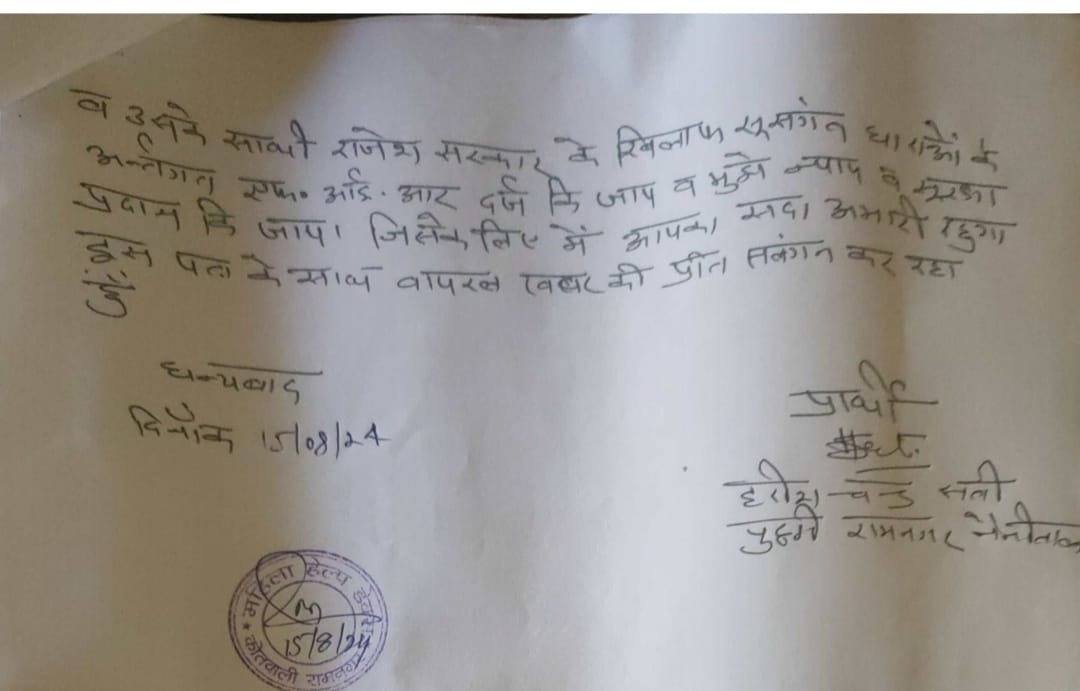 व उनके साथी राजेश सरकार के खिलाफ सुसंगत धाराओं के
अर्न्तगत एफ. आई. आर दर्ज कि जाय व मुझे न्याय व सुरक्षा
प्रदान कि जाय। जिसके लिए में आपका सदा अभारी रहुगा
इस पत्र के साथ वायरल खबर की प्रति संलंगन कर रहा
हुं।
धन्यवाद
दिनाँक 15/08/24
प्रार्थी
हरीश चन्द्र सती
पुछड़ी रामनगर नैनीताल
महिला हेल्प डेस्क
15/8/24
कोतवाली रामनगर